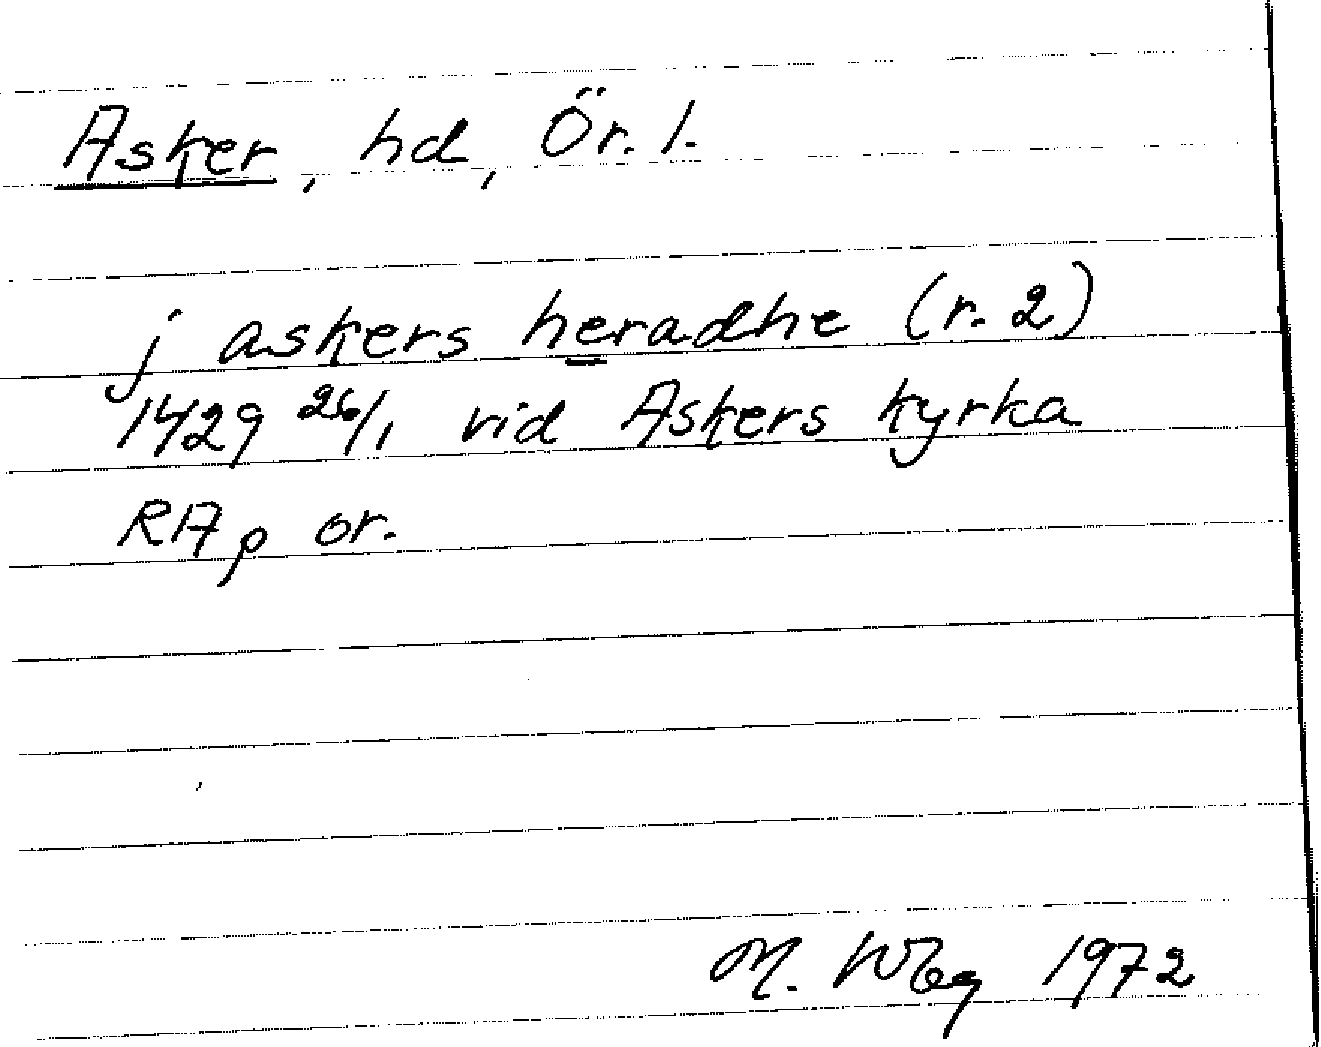 Asker, hd, Ör. l.
j askers heradhe (r. 2)
1429 26/1 vid Askers kyrka
RAp or.
M. Wbg 1972